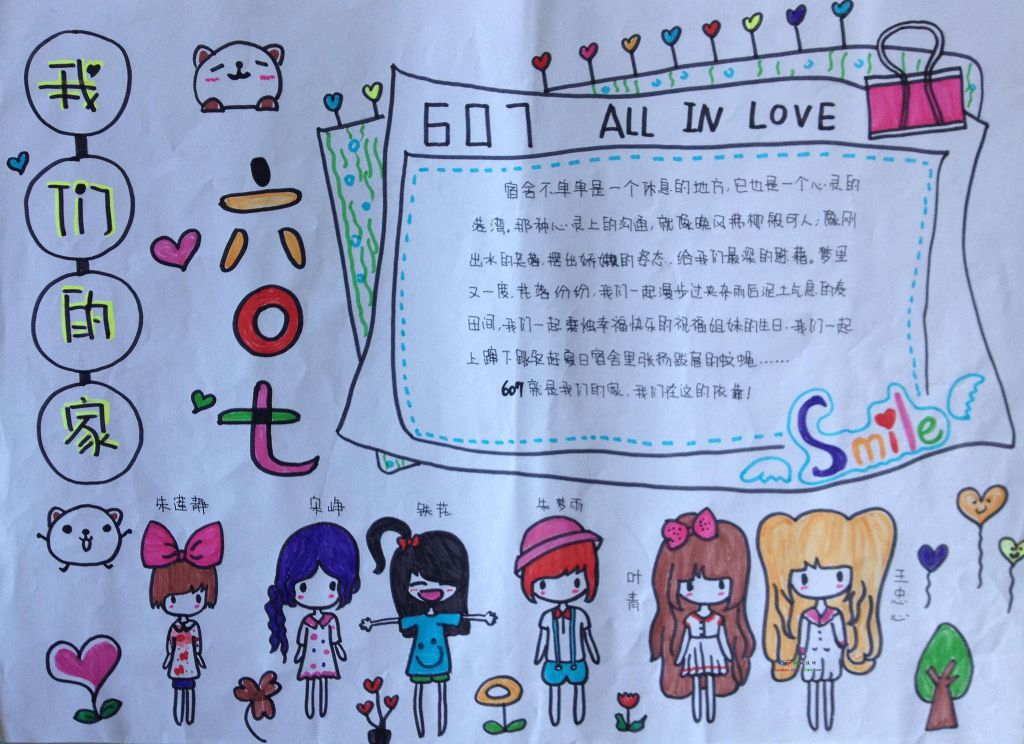 我们的家
六〇七
607 ALL IN LOVE
宿舍不单单是一个休息的地方,它也是一个心灵的
港湾。那种心灵上的沟通,就像晚风拂柳般可人;像刚
出水的芙蓉,摆出娇嫩的姿态,给我们最深的慰藉。梦里
又一度,花落纷纷,我们一起漫步过夹杂雨后泥土气息的
田间,我们一起秉烛幸福快乐的祝福姐妹的生日,我们一起
上蹿下跳驱赶夏日宿舍里张扬跋扈的蚊蝇……
607就是我们的家,我们在这的依靠!
Smile
朱莲静
吴峥
铁花
朱梦雨
叶青
王忠心